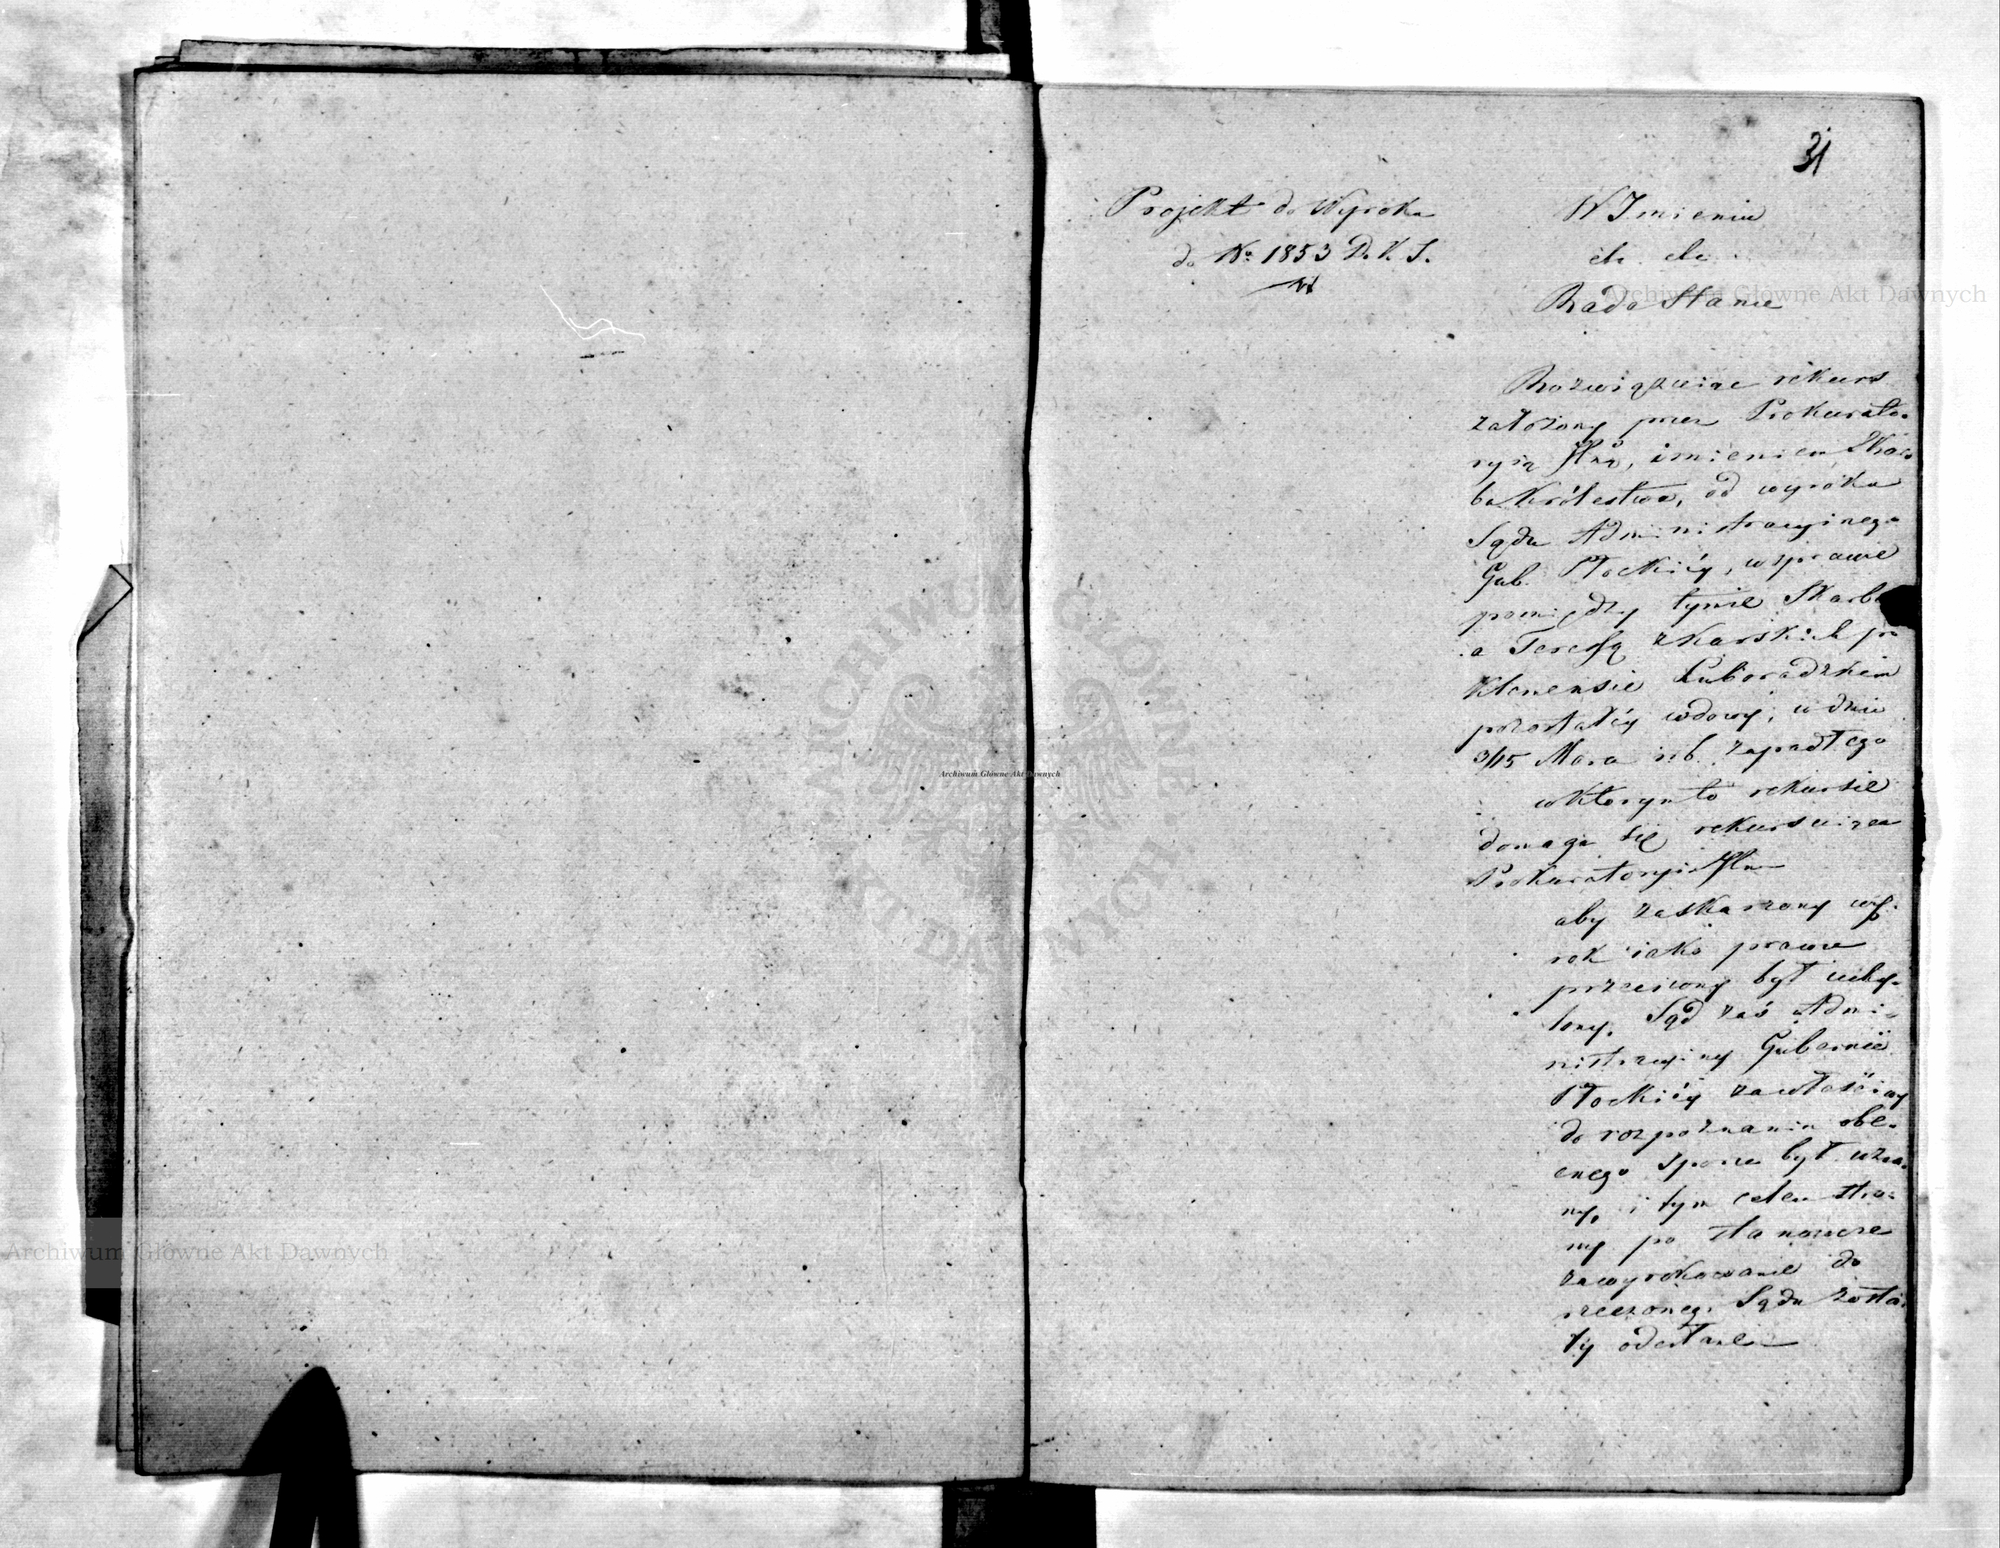 31
Projekt do Wyroku
do No 1853 D.K.S.
W Imieniu
etc. etc.
Rada Stanu
Rozwiązuiąc rekurs
założony przez Prokurato-
ryią Jlną, imieniem Skar-
bu Królestwa, od wyroku
Sądu Administracyinego
Gub. Płockiéy, w sprawie
pomiędzy tymże Skarbem
a Teressą z Karskich po
Klemensie Luboradzkim
pozostałéy wdowy, w dniu
3/15 Marca r.b. zapadłego
w którym to rekursie
domaga się rekursuiąca
Prokuratoryia Jlna
aby zaskarżony wy-
rok iako prawu
przeciwny był uchy-
lony, Sąd zaś Admi-
nistracyiny Gubernii
Płockiéy za właściwy
do rozpoznania obe-
cnego sporu był uzna-
ny, i tym celem stro-
ny po stanowcze
zawyrokowanie do
rzeczonego Sądu zosta-
ły odesłane
Archiwum Główne Akt Dawnych
Archiwum Główne Akt Dawnych
Archiwum Główne Akt Dawnych
ARCHIWUM GŁÓWNE AKT DAWNYCH